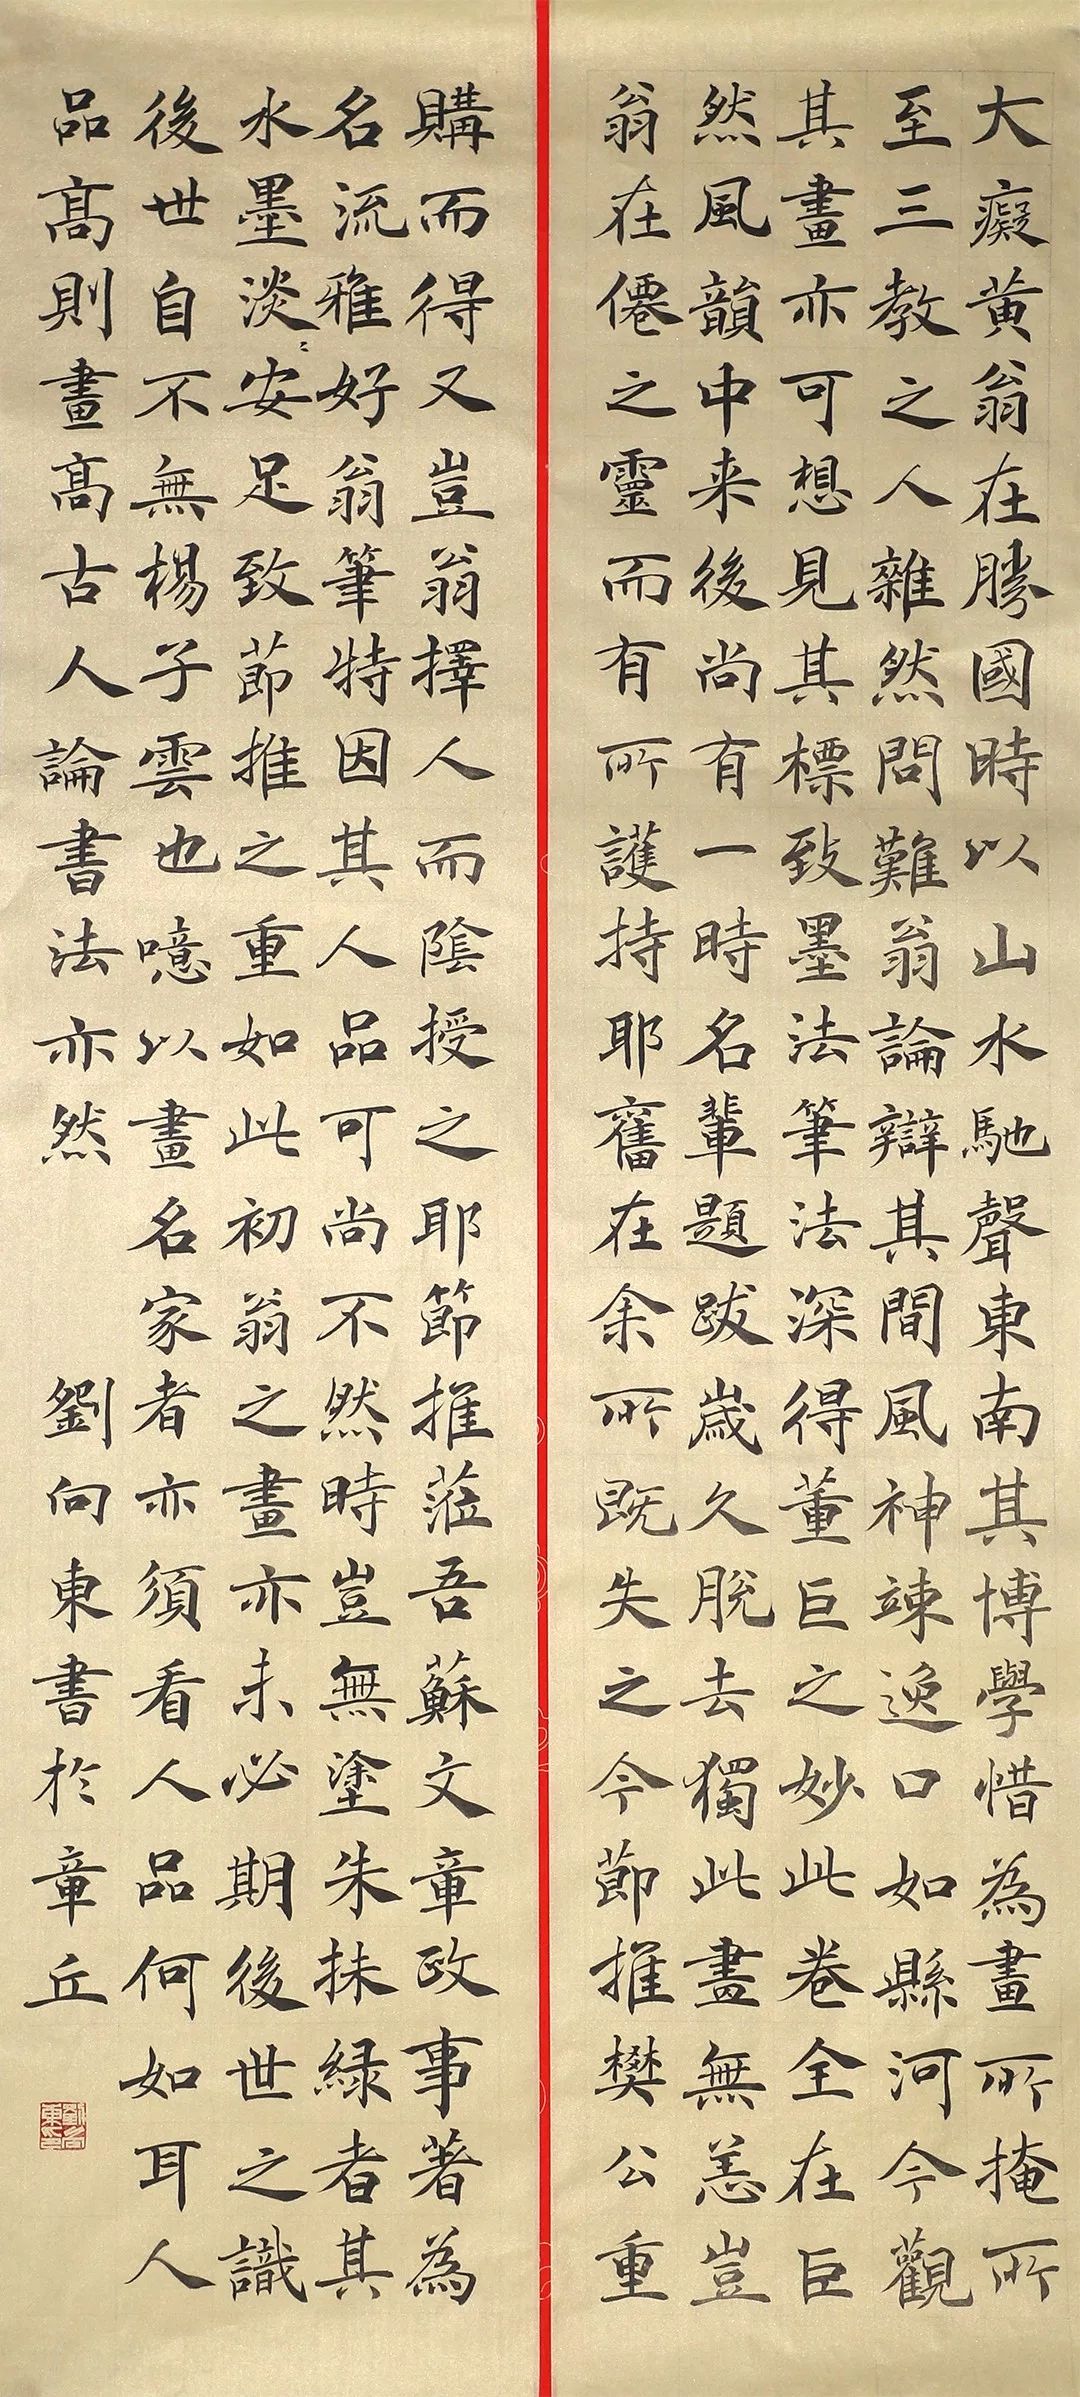 大癡黃翁在勝國時以山水馳聲東南其博學惜為畫所掩所
至三教之人雜然問難翁論辯其間風神竦逸口如縣河今觀
其畫亦可想見其標致墨法筆法深得董巨之妙此卷全在巨
然風韻中来後尚有一時名輩題跋歲久脫去獨此畫無恙豈
翁在僊之靈而有所護持耶舊在余所既失之今節推樊公重
購而得又豈翁擇人而陰授之耶節推蒞吾蘇文章政事著為
名流雅好翁筆特因其人品可尚不然時豈無塗朱抹緑者其
水墨淡淡安足致節推之重如此初翁之畫亦未必期後世之識
後世自不無楊子雲也噫以畫名家者亦須看人品何如耳人
品髙則畫髙古人論書法亦然 劉向東書於章丘